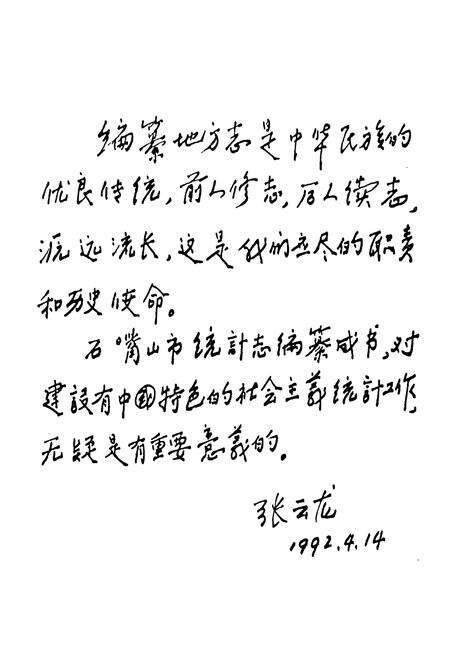 编纂地方志是中华民族的
优良传统，前人修志，后人续志，
源远流长，这是我们应尽的职责
和历史使命。
石嘴山市统計志编纂成书，对
建設有中國特色的社会主義统計工作，
无疑是有重要意義的。
张云龙
1992.4.14